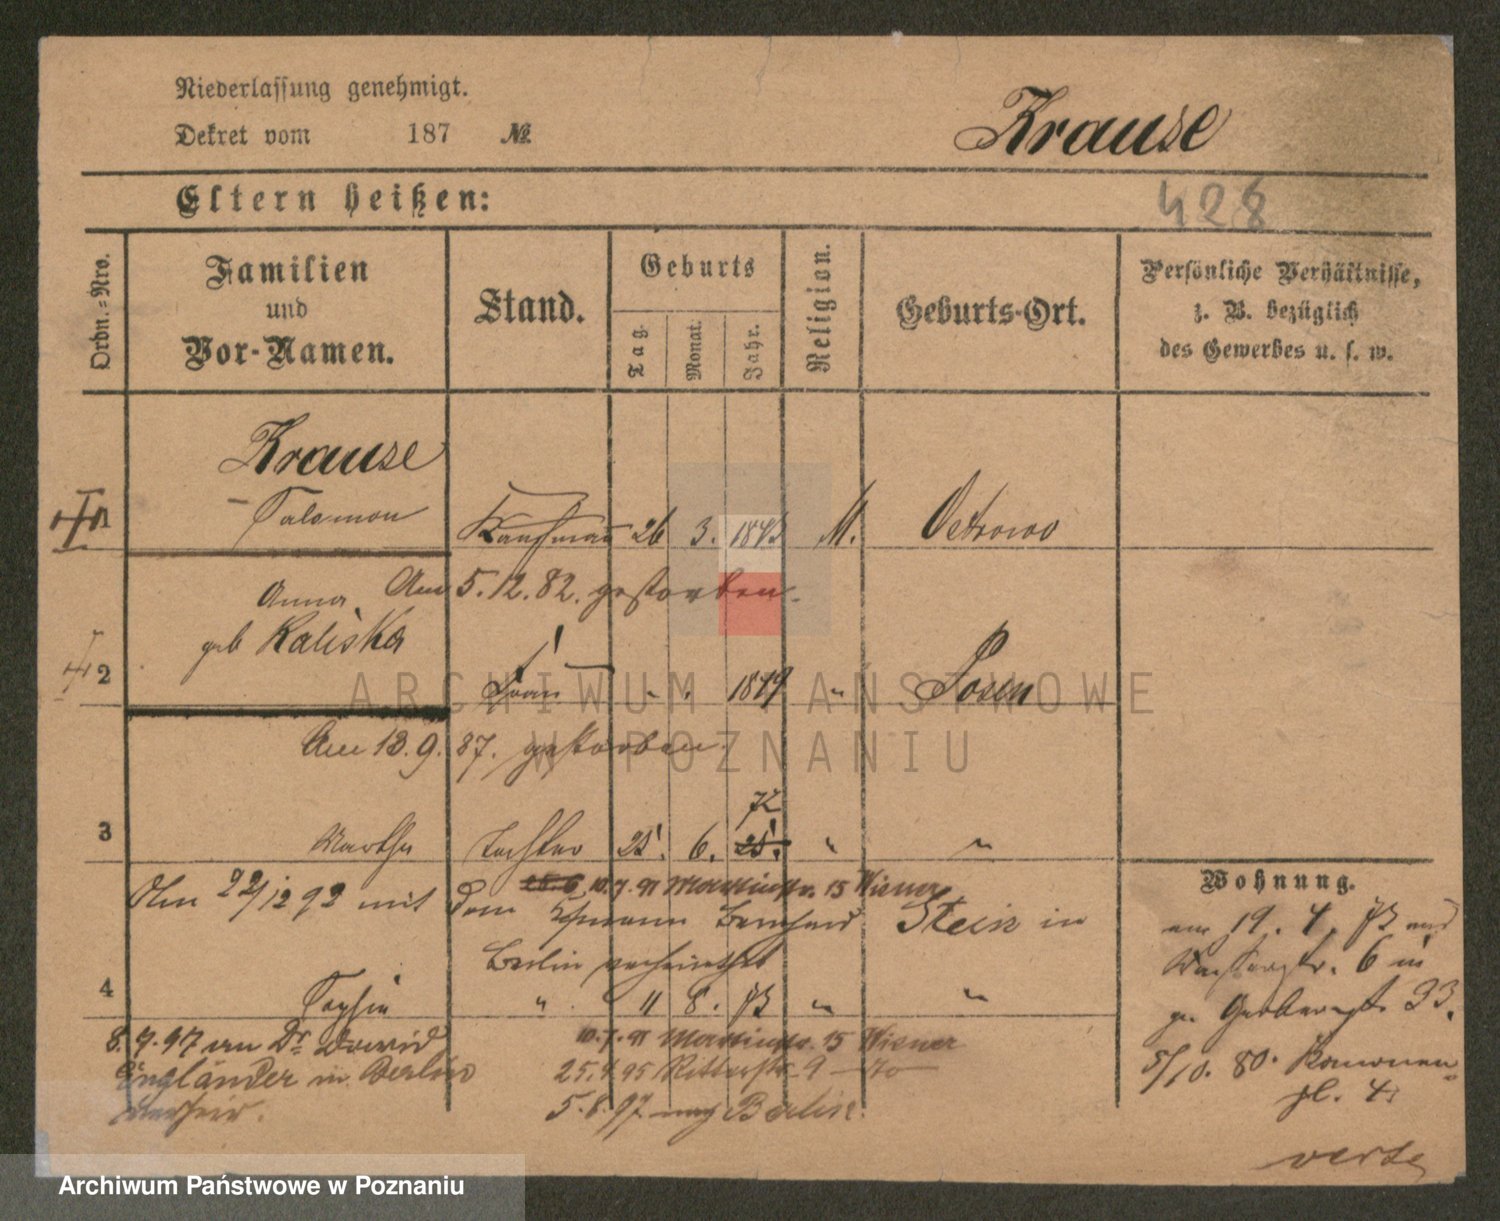 Niederlassung genehmigt.
Krause
Dekret vom 187 №
Eltern heißen:
428
Ordn.-Nro.
Familien
und
Vor-Namen.
Stand.
Geburts
Tag.
Monat.
Jahr.
Religion.
Geburts-Ort.
Persönliche Verhältnisse,
z. B. bezüglich
des Gewerbes u. s. w.
Krause
1 Salomon Kaufmann 26 3. 1843 M. Ostrowo
Am 5.12.82. gestorben.
Anna
geb Kaliska
2 Frau 1849 " Posen
Am 13.9.87. gestorben.
72
3 Martha Tochter 25. 6. " "
10.7.91 Martinstr. 15 Wiener
Am 22/12 92 mit dem Kaufmann Bernhard Stein in
Berlin verheirathet
4 Sophie " 11 8. 73 " "
8.7.97 an Dr David
Engländer in Berlin
verheir.
10.7.91 Martinstr. 15 Wiener
25.4.95 Ritterstr. 9
5.8.97 nach Berlin.
Wohnung.
am 19. 4. 73 aus
6 in
Gerberstr 33.
5/10. 80. Kanonen-
pl. 4
verte
ARCHIWUM PAŃSTWOWE
W POZNANIU
Archiwum Państwowe w Poznaniu